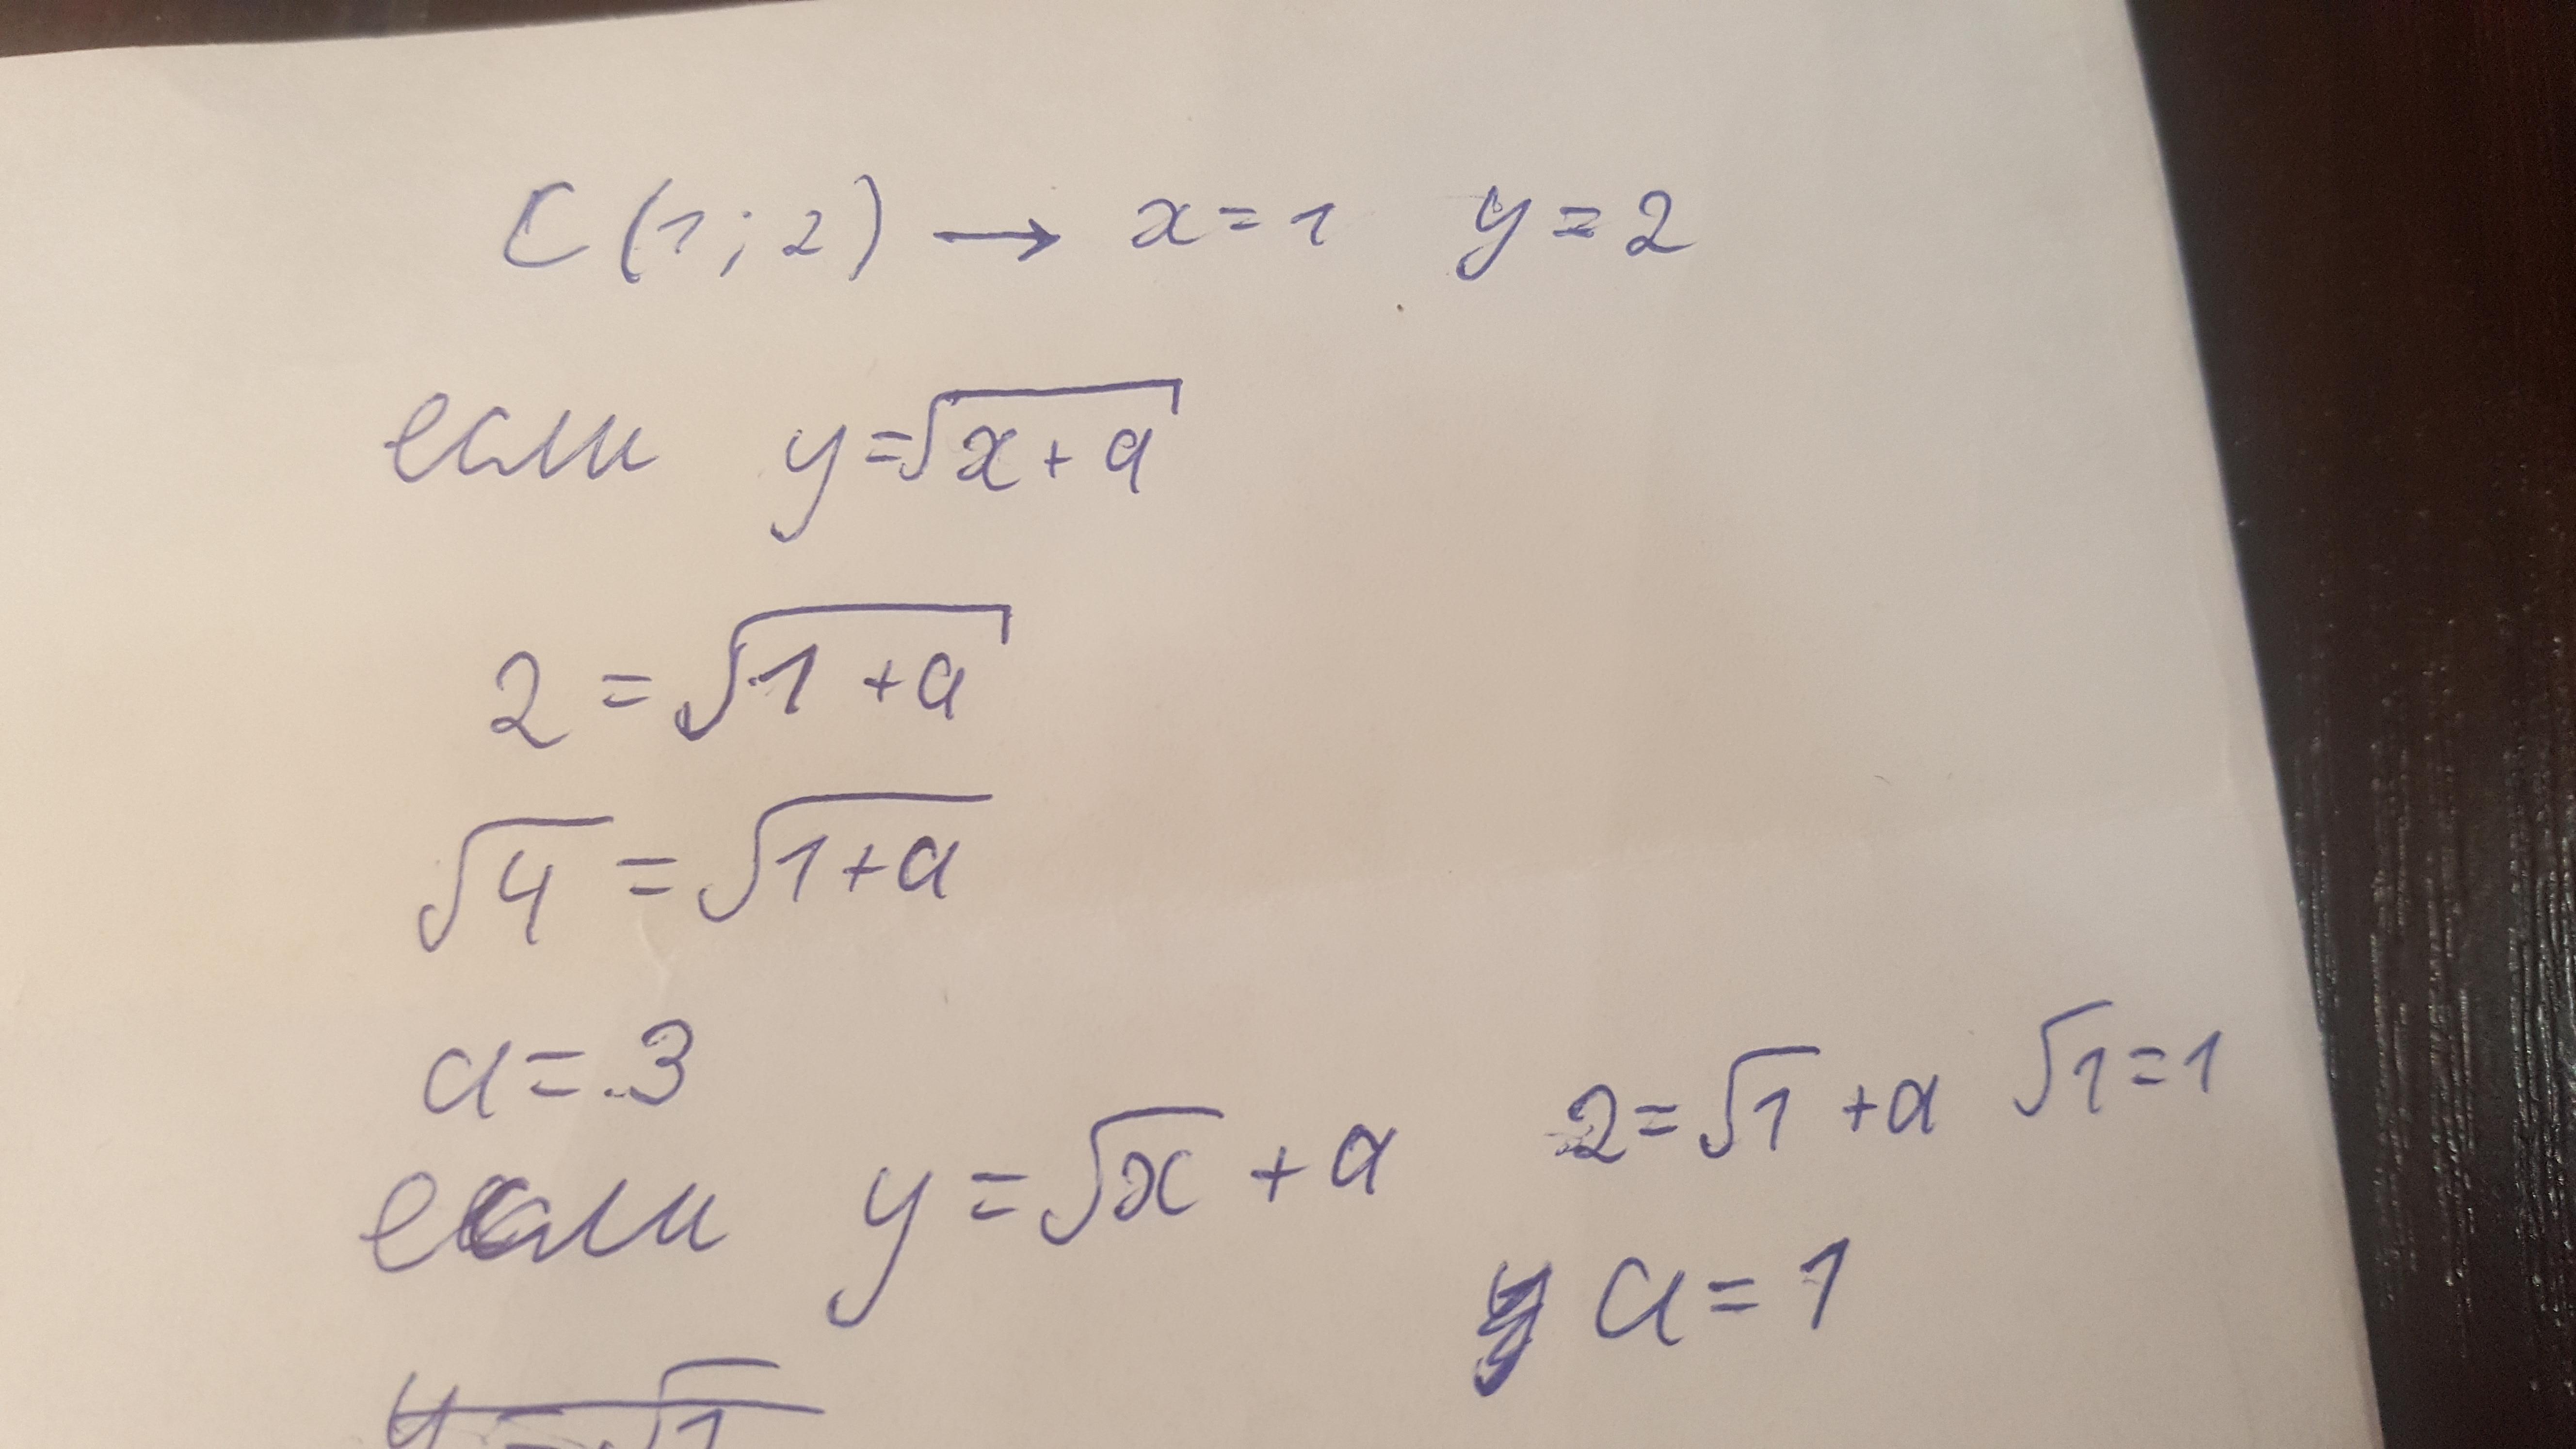 C (1; 2) → x = 1 y = 2
если y = √(x + a)
2 = √(1 + a)
√4 = √(1 + a)
a = 3
если y = √x + a 2 = √1 + a √1 = 1
a = 1
y = √1